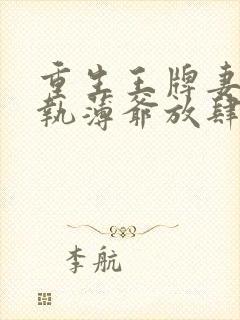 重生王牌妻
執薄爺放肆
李航